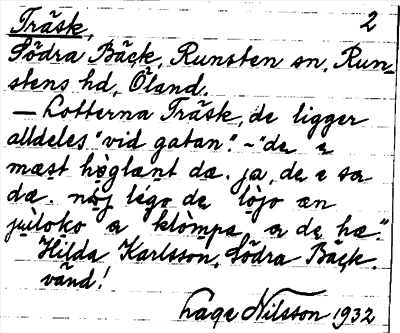 Träsk, 2
Södra Bäck, Runsten sn, Run-
stens hd, Öland.
— Lotterna Träsk, de ligger
alldeles "vid gatan". – "de e
mæst høglænt dæ. ja, de e sa
dæ. nøj légo de löjo æn
juloko a klömpa a de hæ."
Hilda Karlsson, Södra Bäck.
vänd!
Lage Nilsson 1932